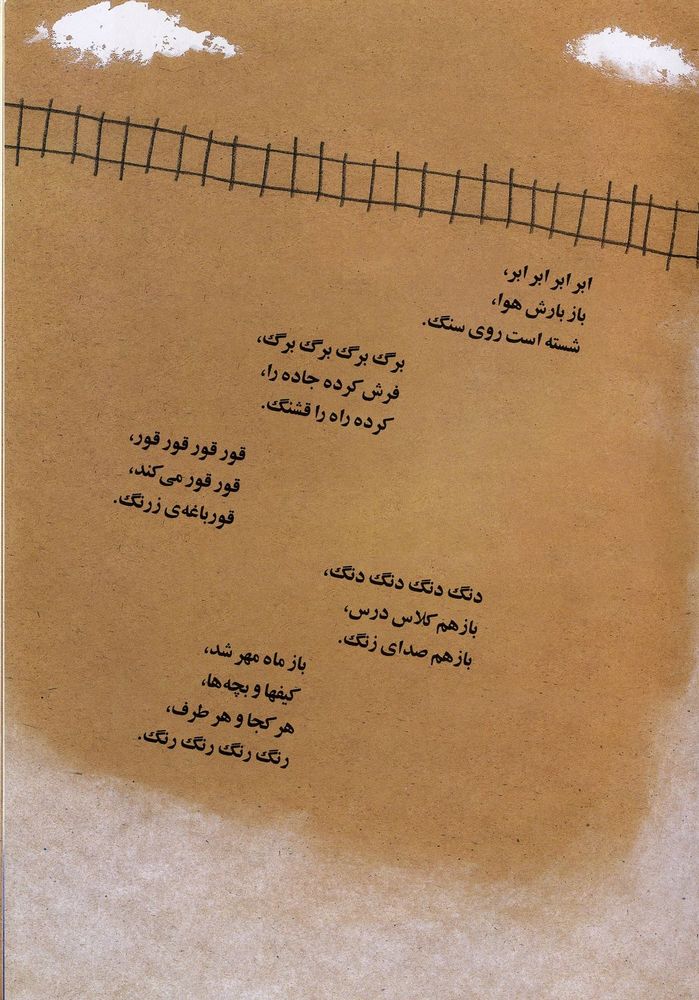 ابر ابر ابر ابر،
باز بارش هوا،
شسته است روی سنگ.
برگ برگ برگ برگ،
فرش کرده جاده را،
کرده راه را قشنگ.
قور قور قور قور،
قور قور می‌کند،
قورباغه‌ی زرنگ.
دنگ دنگ دنگ دنگ،
باز هم کلاس درس،
باز هم صدای زنگ.
باز ماه مهر شد،
کیفها و بچه‌ها،
هر کجا و هر طرف،
رنگ رنگ رنگ رنگ.